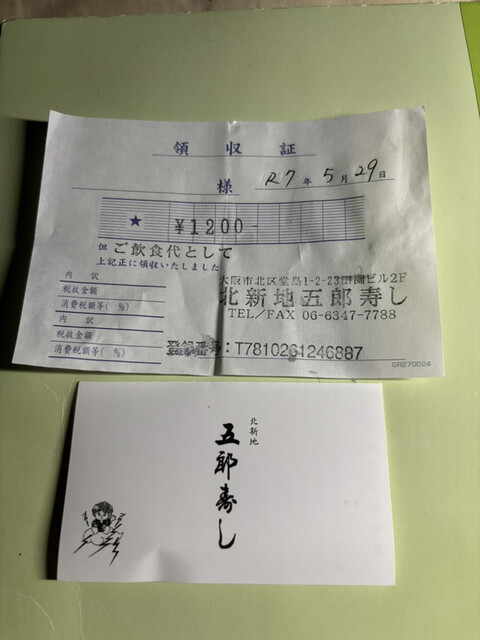 領収証
様
R7年5月29日
★ ¥1200-
但 ご飲食代として
上記正に領収いたしました
内 訳
税抜金額
消費税額等( %)
内 訳
税抜金額
消費税額等( %)
大阪市北区堂島1-2-23田園ビル2F
北新地五郎寿し
TEL/FAX 06-6347-7788
登録番号:T7810261246887
GR270024
北新地
五郎寿し